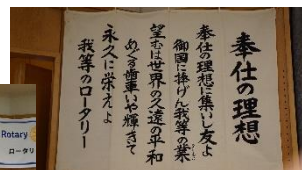 奉仕の理想
奉仕の理想に集いし友よ
御国に捧げん我等の業
望むは世界の久遠の平和
めぐる歯車いや輝きて
永久に栄えよ
我等のロータリー
Rotary
ロータリ